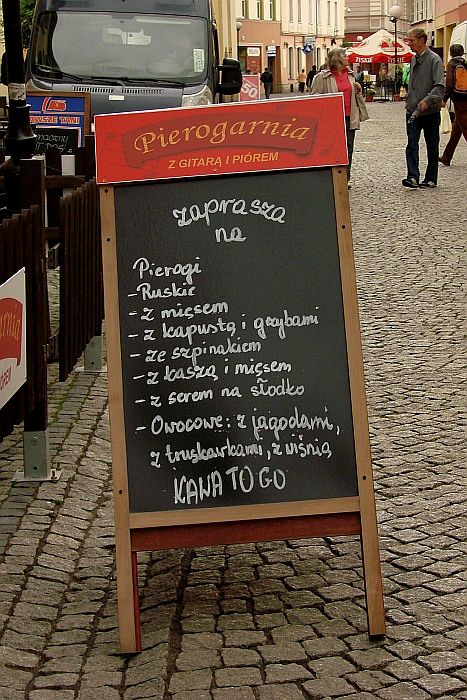 Pierogarnia
Z GITARĄ I PIÓREM
zaprasza
na
Pierogi
- Ruskie
- z mięsem
- z kapustą i grzybami
- ze szpinakiem
- z kaszą i mięsem
- z serem na słodko
- Owocowe: z jagodami,
z truskawkami, z wiśnią
KAWA TO GO
TYSKIE
50